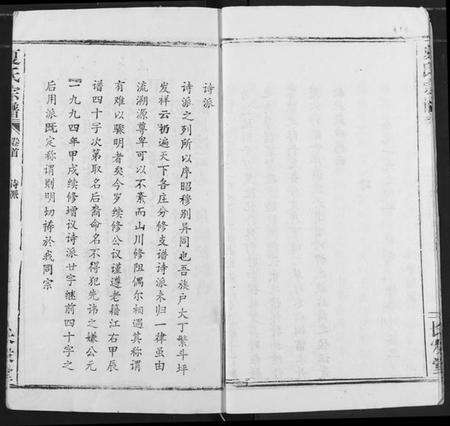 诗派
诗派之列所以序昭穆别异同也吾族户大丁繁斗坪
发祥云礽遍天下各庄分修支谱诗派未归一律虽由
流溯源尊卑可以不紊而山川修阻偶尔相遇其称谓
有难以骤明者矣今岁续修公议谨遵老籍江右甲辰
谱四十字次第取名后裔命名不得犯先讳之嫌公元
一九九四年甲戌续修增议诗派廿字继前四十字之
后用派既定称谓则明切祷於我同宗
夏氏宗谱
卷首
诗派